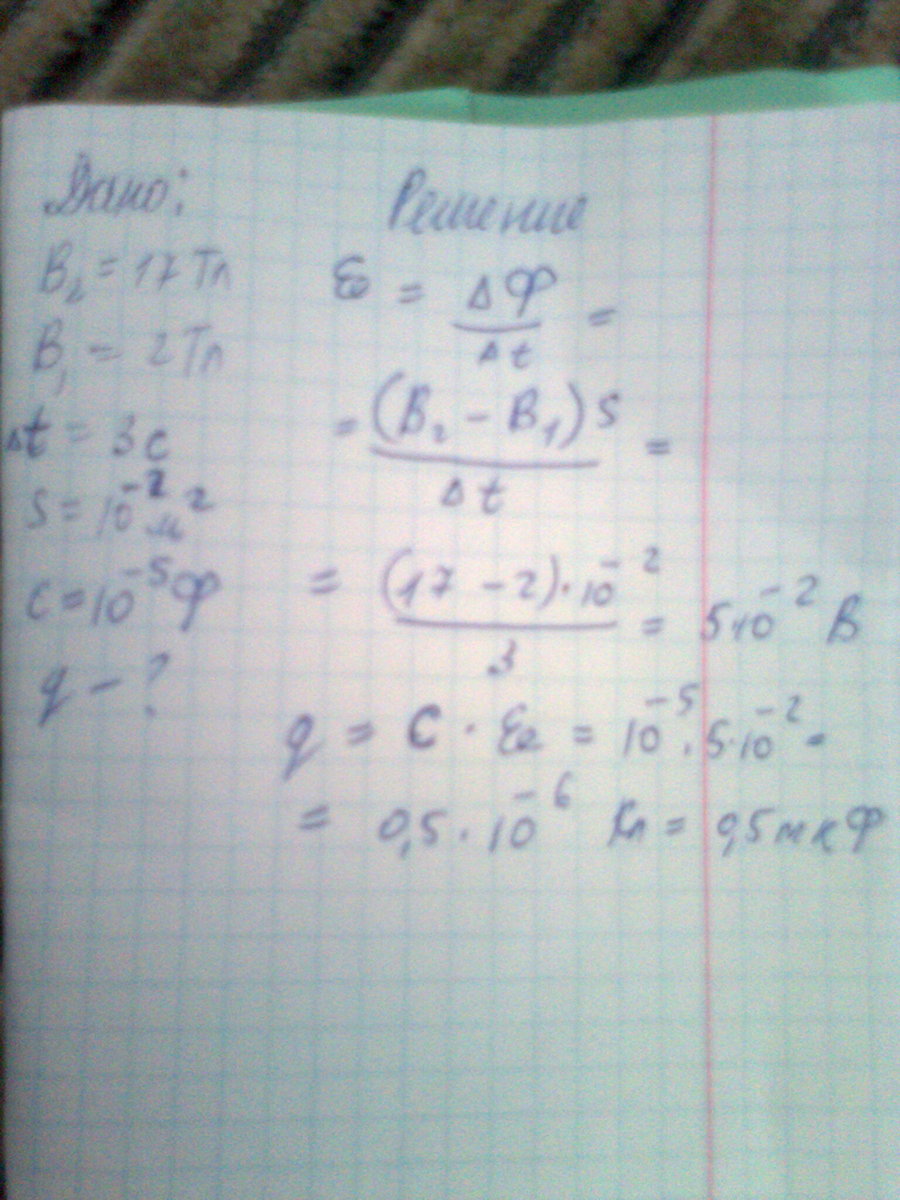 Дано:
B₂ = 17 Тл
B₁ = 2 Тл
Δt = 3 с
S = 10⁻² м²
C = 10⁻⁵ Ф
q - ?
Решение
ℰ = ΔФ / Δt =
= (B₂ - B₁) S / Δt =
= (17 - 2) · 10⁻² / 3 = 5·10⁻² В
q = C · ℰ = 10⁻⁵ · 5·10⁻² =
= 0,5 · 10⁻⁶ Кл = 0,5 мкФ